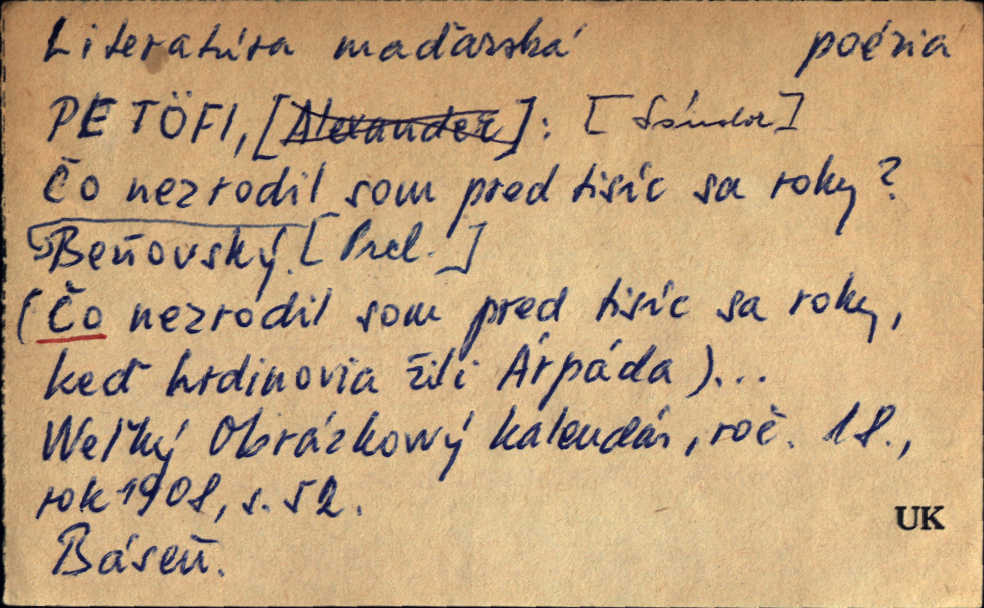 Literatúra maďarská poézia
PETÖFI, [Alexander]: [Sándor]
Čo nezrodil som pred tisíc sa roky?
Beňovský. [Prel.]
(Čo nezrodil som pred tisíc sa roky,
keď hrdinovia žili Árpáda)...
Weľký Obrázkový kalendár, roč. 18.,
rok 1908, s. 52.
UK
Báseň.